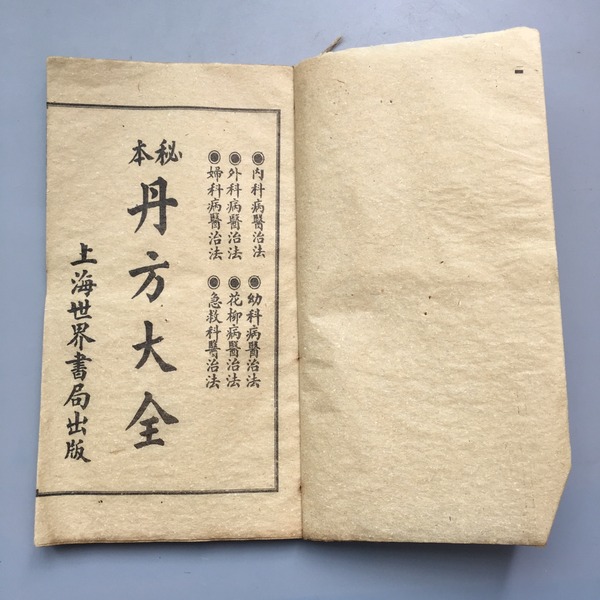 ◉內科病醫治法
◉外科病醫治法
◉婦科病醫治法
◉幼科病醫治法
◉花柳病醫治法
◉急救科醫治法
秘本
丹方大全
上海世界書局出版